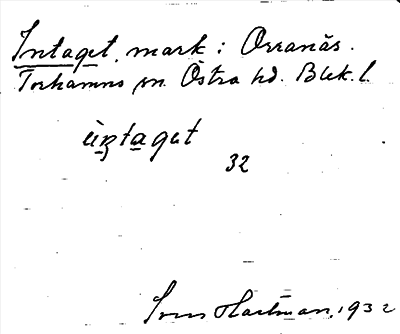 Intaget, mark: Orranäs.
Torhamns sn. Östra hd. Blek. l.
ìntagut
32
Sven Hartman, 1932